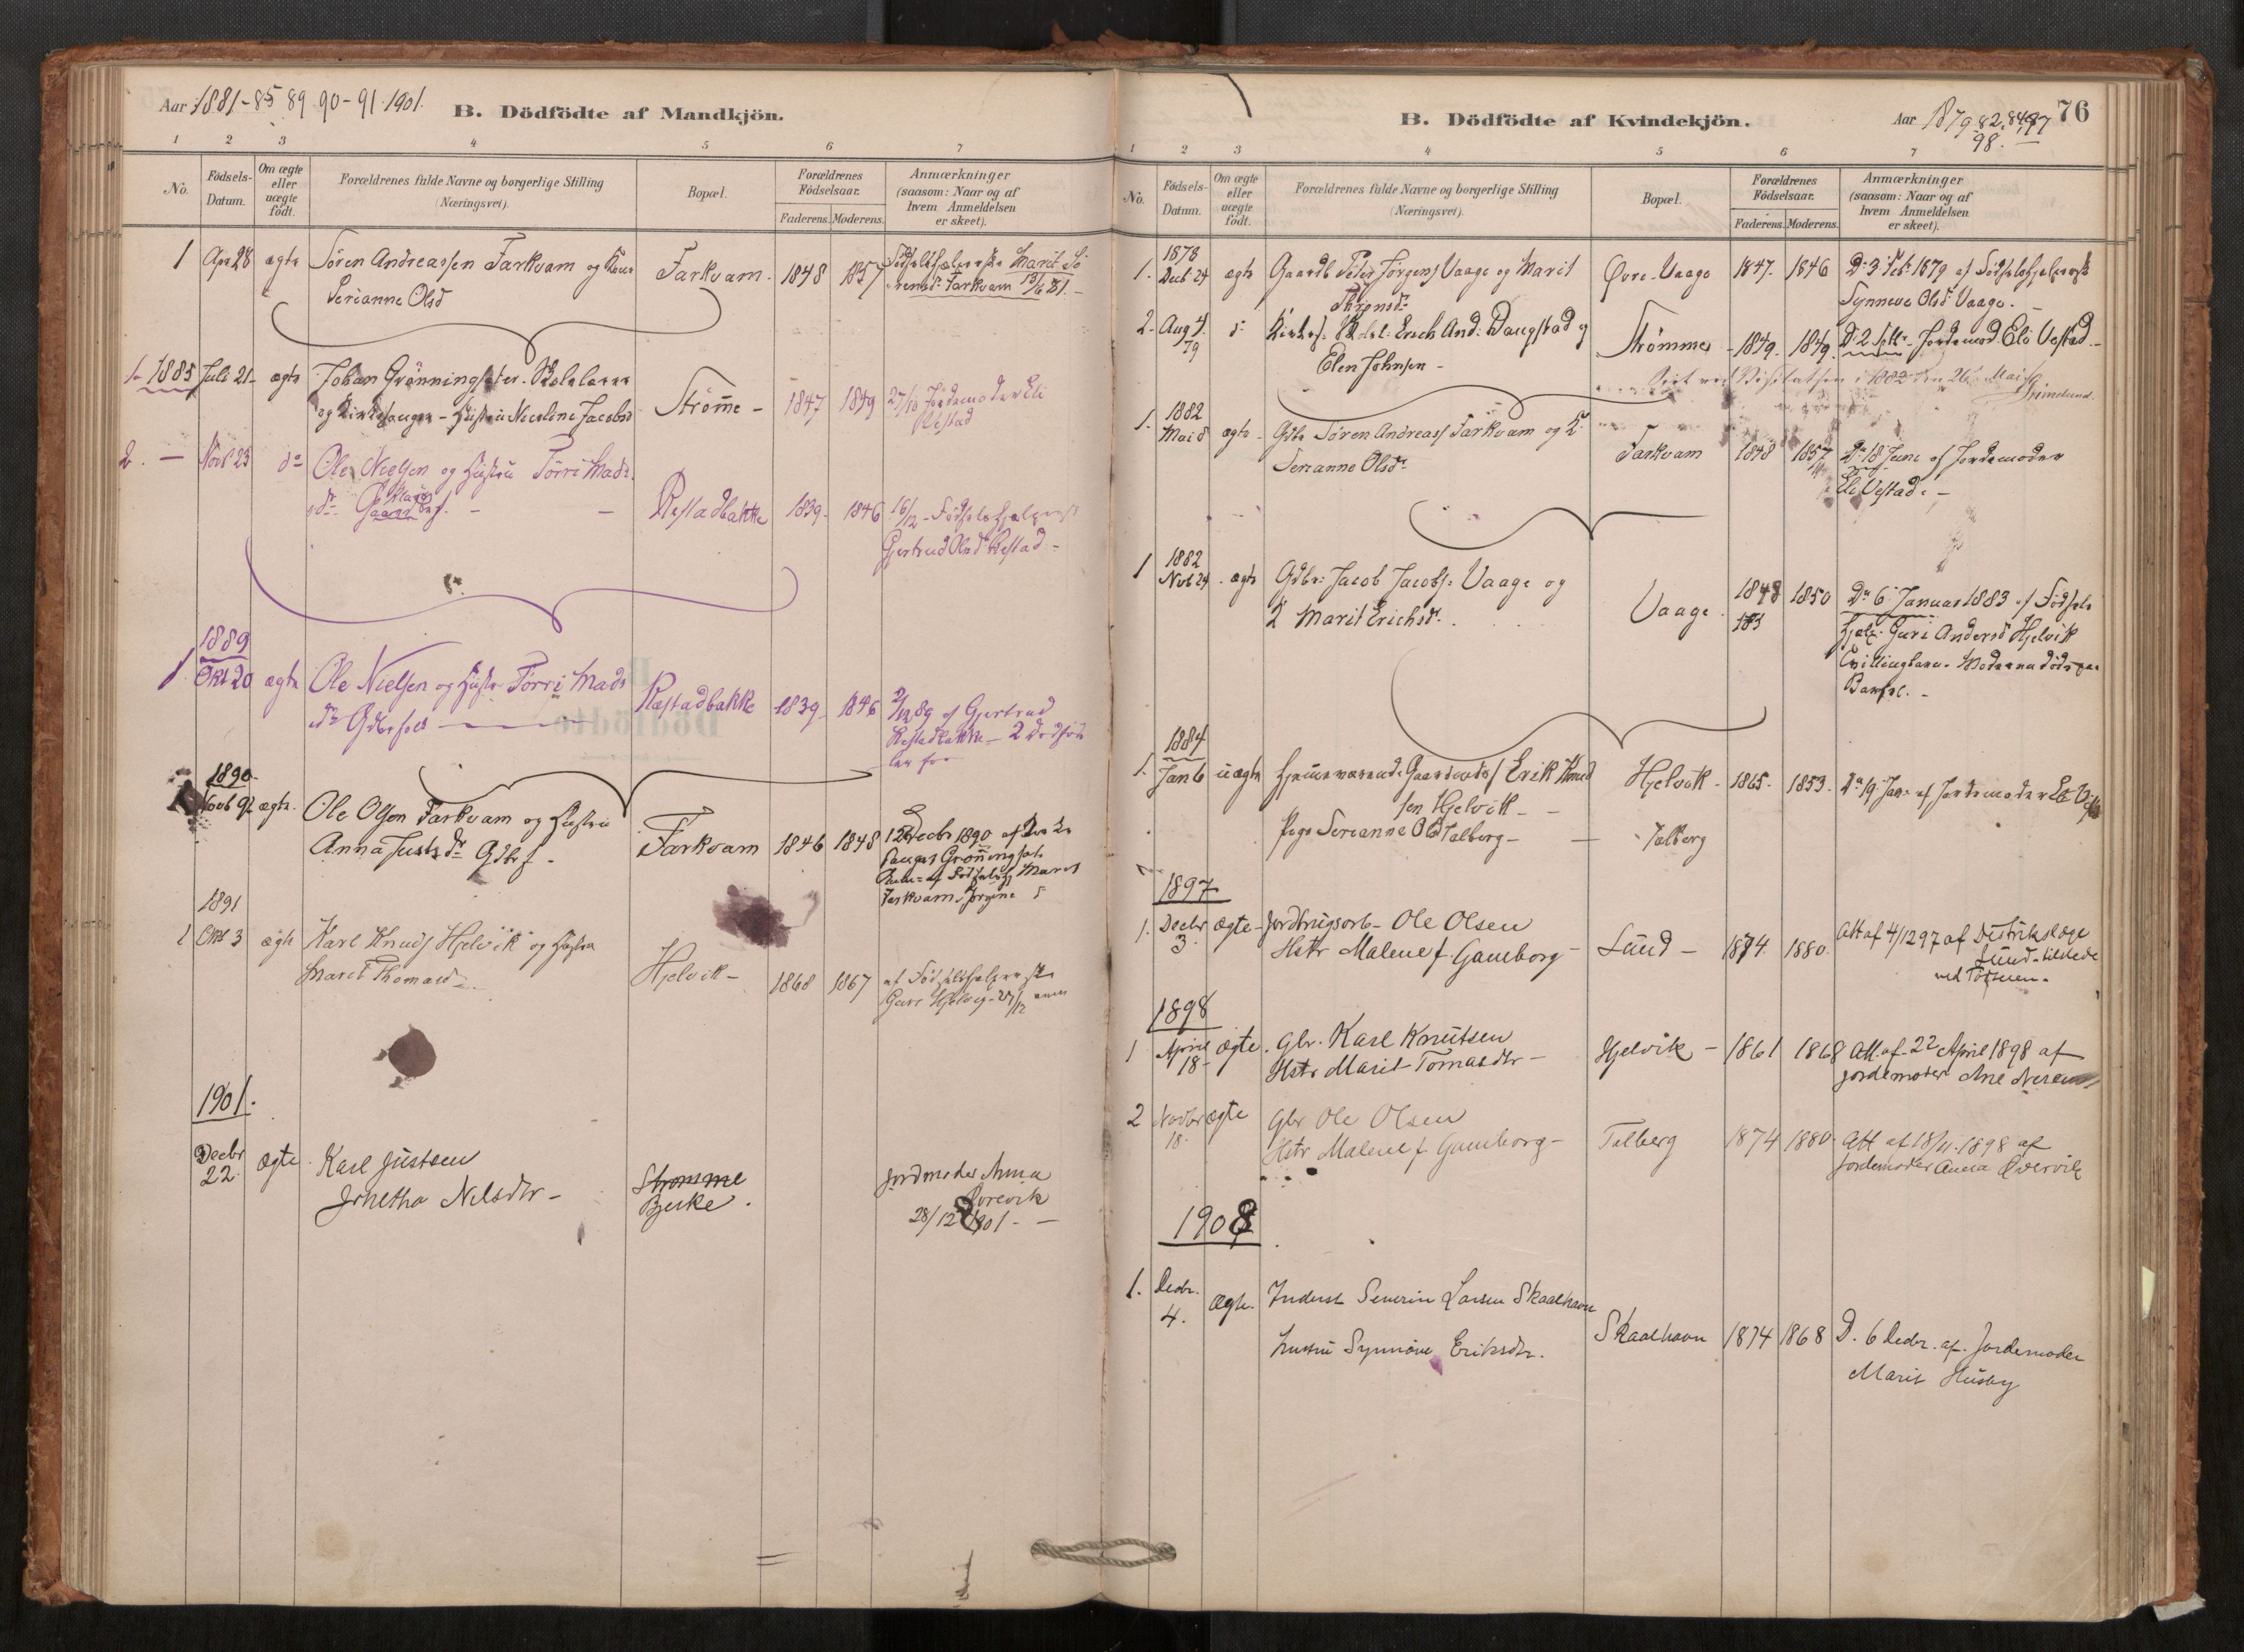 Aar 1881-85 89 90-91-1901.
B. Dödfödte af Mandkjön.
1 2 3 4 5 6 7
No.
Födsels-
Datum.
Om ægte
eller
uægte
födt.
Forældrenes fulde Navne og borgerlige Stilling
(Næringsvei).
Bopæl.
Forældrenes
Födselsaar.
Faderens. Moderens.
Anmærkninger
(saasom: Naar og af
hvem Anmeldelsen
er skeet).
1 Apr 28 ægte Søren Andreassen Farkvam og Kone Farkvam. 1848 1857 Marit Sö
Serianne Olsd Farkvam
1. 1885 Juli 21 ægte Johan Grönningsæter. Skolelærer
og Kirkesanger - Hustru Nicoline Jacobsd Strøme - 1847 1849 27/10 Jordemoder Eli
Vestad
2. - Novb 23 do Ole Nielsen og Hustru Torri Mads
dr Gaardbr. - Restadbakke 1839 - 1846 16/12 - Födselshjælpersk
Gjertrud Olsd Restad -
1889
1. Okt 20 ægte Ole Nielsen og Hustr Torri Mads
dr Restadbakke 1839 1846 2/12 89 af Gjertrud
Restadbakke - 2 Dødföd
1890
Novb 9 ægte. Ole Olsen Farkvam og Hustru
Anna Justsdr Gdbr. Farkvam 1846 1848 12 Decbr 1890 af
Grönningsæt
Marit
Farkvam, Jorgine
1891
1 Okt 3 ægte Karl Knuds Hjelvik og Hustru
Marit Thomasd Hjelvik - 1868 1867 af Födselshjelperske
Guri Hjelvig
1901.
Decbr
22. ægte. Karl Justsen
Nelsdtr - Stromme
Bjerke. Jordmoder Anna
Ovrevik
28/12 1901 -
B. Dödfödte af Kvindekjön.
Aar 1879 82, 84, 97
98.
76
1 2 3 4 5 6 7
No.
Födsels-
Datum.
Om ægte
eller
uægte
födt.
Forældrenes fulde Navne og borgerlige Stilling
(Næringsvei).
Bopæl.
Forældrenes
Födselsaar.
Faderens. Moderens.
Anmærkninger
(saasom: Naar og af
hvem Anmeldelsen
er skeet).
1878
1. Decb 24 ægte Gaardb Peter Jörgens Vaage og Marit Øvre-Vaage 1847. 1846 D. 3 Feb. 1879 af Födselshjelpersk
Synneve Olsd Vaage.
2. Aug 4. do Erich And: Daugstad og
79 Elen Johnsen - Strømme - 1849. 1849. D. 2 Jordemod. Eli Vestad. -
Visitatsen i 1882 den 26 Mai
Grimelund.
1882
1. Mai 8 ægte - Gdbr Sören Andreass Farkvam og K
Serianne Olsdr Farkvam 1848 1857 Do 18 Juni af Jordemoder
Eli Vestad. -
1882
1 Nvb 24 ægte Gdbr: Jacob Jacobs: Vaage og
K Marit Erichsdr. Vaage 1848 1850 Do 6 Januar 1883 af Födsels
hjelp. Guri Andersd Hjelvik
Tvillingbarn. Moderen död paa
Barsel. -
1884
1. Jan 6 uægte Hjemmeværende Gaardmds Erik Knud
sen Hjelvik - Hjelvik - 1865. 1853. Do 19 Jan: af Jordemoder
Pige Serianne Olsd Talberg - Talberg
1897
1. Decbr
3. ægte - Jordbrugsarb - Ole Olsen
Hstr Malene f. Gamborg - Lund - 1874. 1880. Att af 4/12 97 af Distriktslæge
Lund - tilstede
ved
1898
1 April
18 - ægte. Gbr. Karl Knutsen
Hstr Marit Tomasdtr - Hjelvik - 1861 1868 Att. af 22 April 1898 af
jordemoder Ane
2 Novbr
18. ægte Gbr Ole Olsen
Hstr Malene f Gamborg - Talberg 1874 1880. Att af 18/11 - 1898 af
Jordemoder Anna Øvervik
1908
1. Decbr.
4. ægte. Inderst Severin Larsen Skaalhavn
hustru Synnöve Eriksdtr. Skaalhavn 1874 1868 D. 6 Decbr. af. Jordemoder
Marit Husby